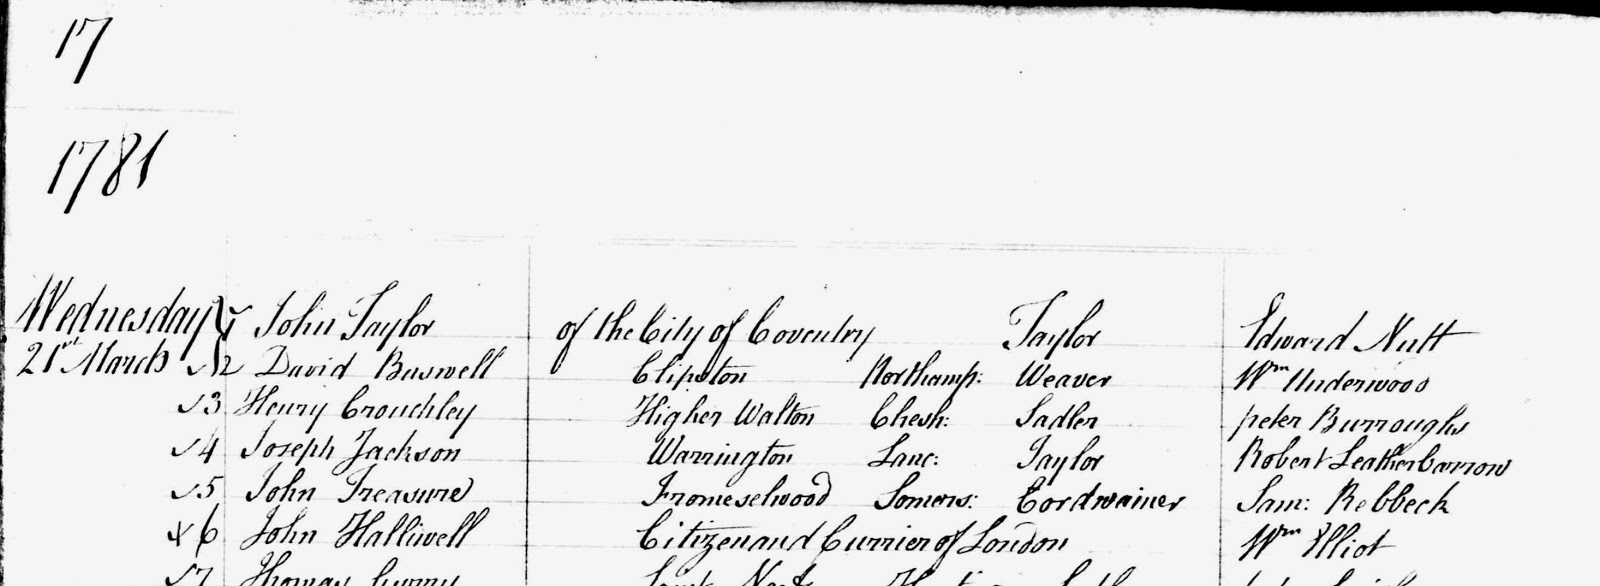 17
1781
Wednesday 1 John Taylor of the City of Coventry Taylor Edward Nutt
21st March 2 David Buswell Clipston Northamp: Weaver Wm Underwood
3 Henry Crouchley Higher Walton Chesh: Sadler peter Burroughs
4 Joseph Jackson Warrington Lanc: Taylor Robert Leatherbarrow
5 John Treasure Fromeselwood Somers: Cordwainer Sam: Rebbeck
6 John Halliwell Citizen and Currier of London Wm Elliot
7 Thomas